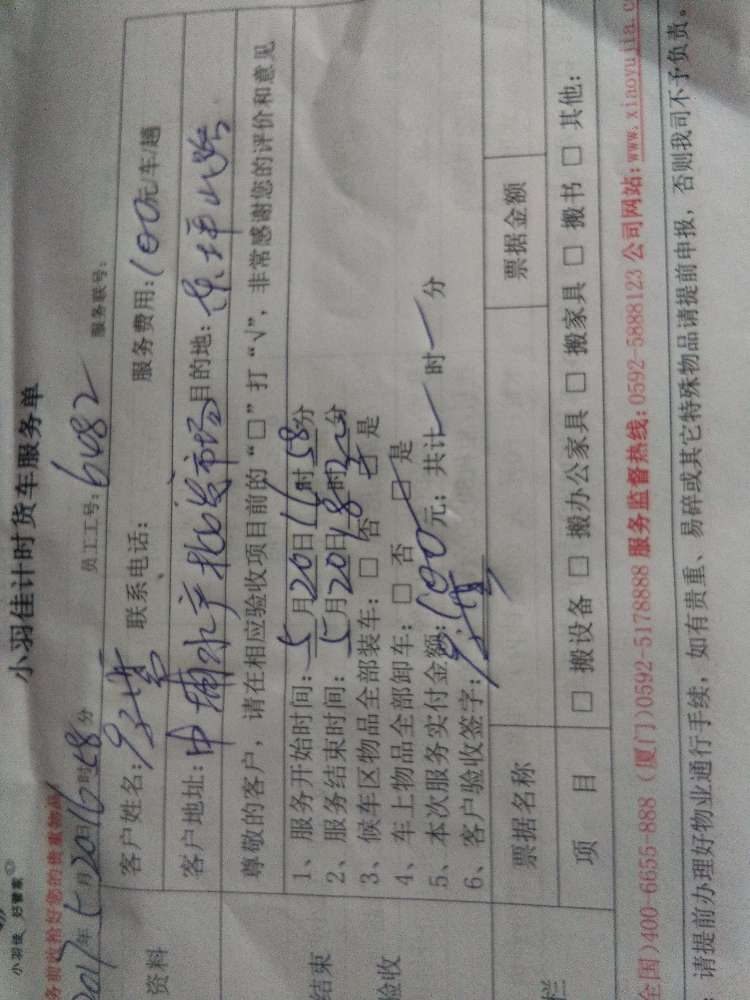 小羽佳 好管家
小羽佳计时货车服务单
务前收拾好您的贵重物品
2017年5月20日16时58分 员工工号:6482 服务联号:
资料
客户姓名: 联系电话: 服务费用:100元/车/趟
客户地址:中埔水产批发市场 目的地:
尊敬的客户,请在相应验收项目前的“□”打“√”,非常感谢您的评价和意见
结束
验收
1、服务开始时间:5月20日16时58分
2、服务结束时间:5月20日18时20分
3、候车区物品全部装车:□ 否 □ 是
4、车上物品全部卸车:□ 否 □ 是
5、本次服务实付金额:100元;共计 时 分
6、客户验收签字:
票据名称 票据金额
栏
项 目 □ 搬设备 □ 搬办公家具 □ 搬家具 □ 搬书 □ 其他:
全国)400-6655-888 (厦门)0592-5178888 服务监督热线:0592-5888123 公司网站:www.xiaoyujia.c
请提前办理好物业通行手续,如有贵重、易碎或其它特殊物品请提前申报,否则我司不予负责。